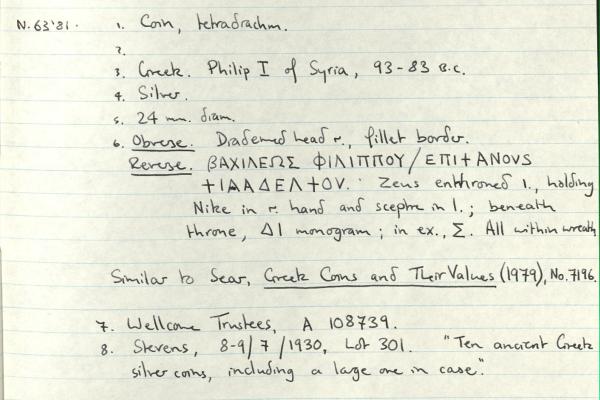 N.63'81. 1. Coin, tetradrachm.
2.
3. Greek. Philip I of Syria, 93-83 B.C.
4. Silver.
5. 24 mm. diam.
6. Obverse. Diademed head r., fillet border.
Reverse. ΒΑΧΙΛΕΩΣ ΦΙΛΙΠΠΟΥ/ΕΠΙ+ΑΝΟVS
+ΙΛΑΔΕΛ+ΟV. Zeus enthroned l., holding
Nike in r. hand and sceptre in l.; beneath
throne, ΔΙ monogram; in ex., Σ. All within wreath
Similar to Sear, Greek Coins and Their Values (1979), No.7196.
7. Wellcome Trustees, A 108739.
8. Stevens, 8-9/7/1930, Lot 301. "Ten ancient Greek
silver coins, including a large one in case".